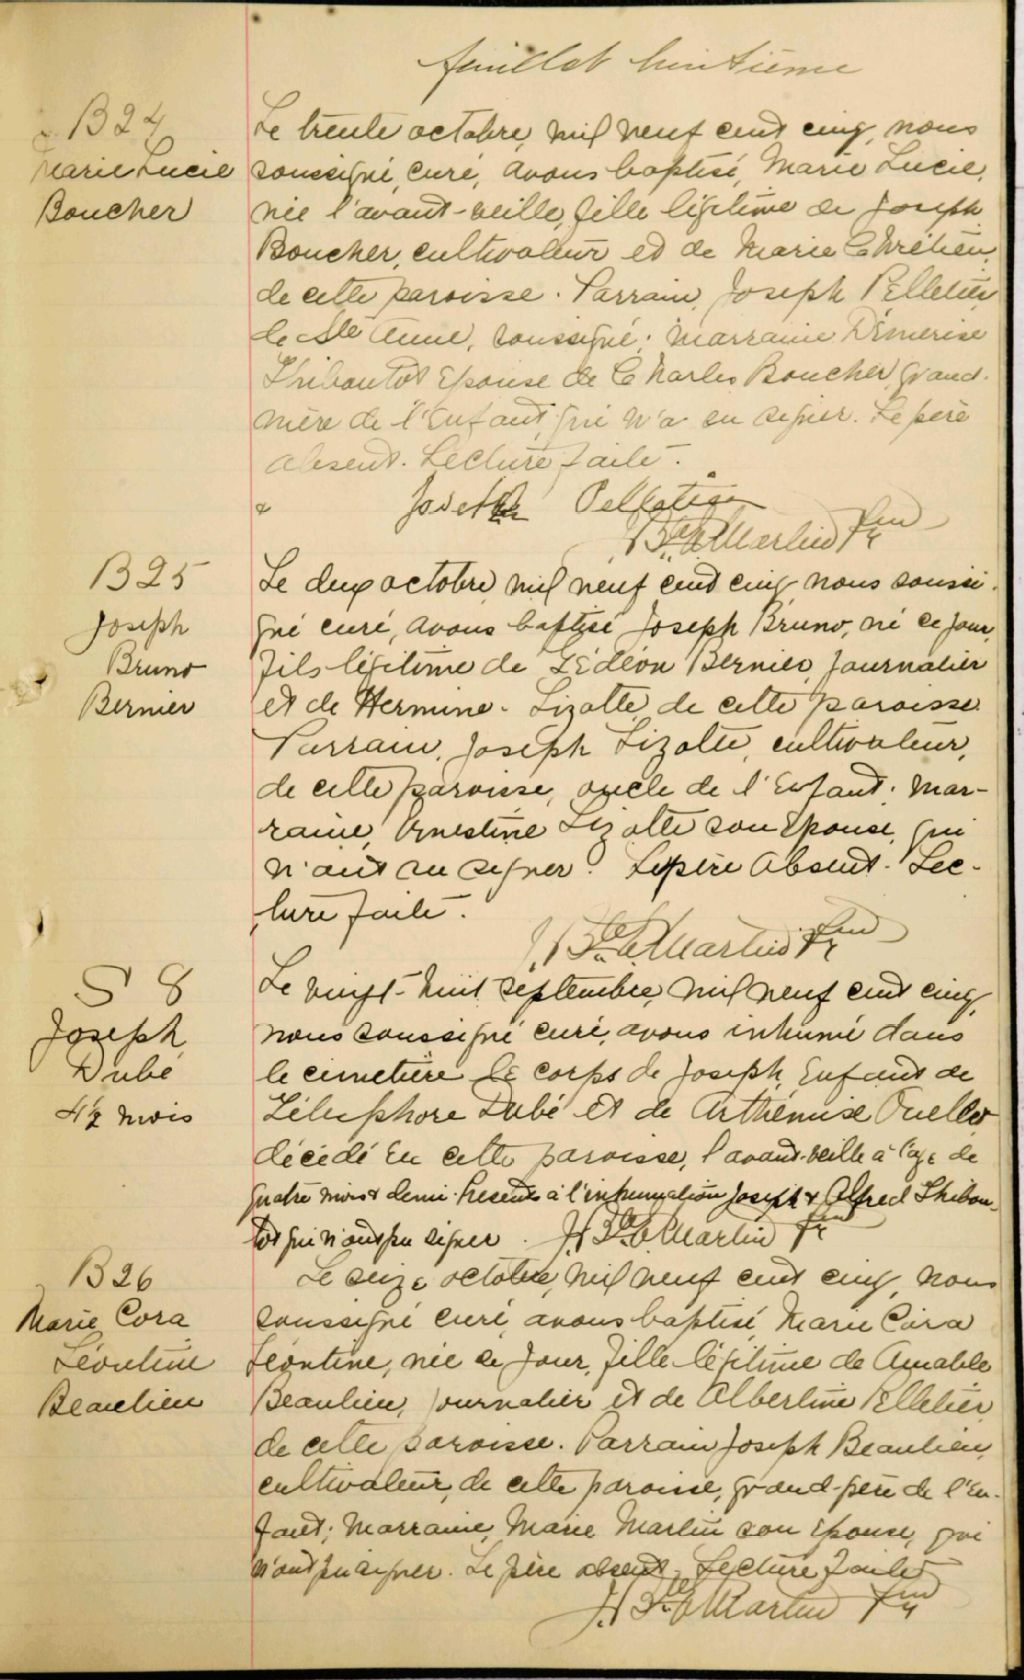 feuillet huitième
B 24
Marie Lucie
Boucher
Le trente octobre, mil neuf cent cinq, nous
soussigné, curé, avons baptisé, Marie Lucie,
née l'avant-veille, fille légitime de Joseph
Boucher, cultivateur et de Marie Chrétien,
de cette paroisse. Parrain, Joseph Pelletier
de Ste Anne, soussigné; marraine Démerise
Thiboutot Epouse de Charles Boucher, grand-
mère de l'Enfant, qui n'a su signer. Le père
absent. Lecture faite.
Joseph Pelletier
J. Bte Martin Ptr
B 25
Joseph
Bruno
Bernier
Le deux octobre, mil neuf cent cinq, nous soussi-
gné curé, avons baptisé Joseph Bruno, né ce jour,
fils légitime de Gédéon Bernier, journalier
et de Hermine Lizotte, de cette paroisse.
Parrain, Joseph Lizotte, cultivateur,
de cette paroisse, oncle de l'Enfant; mar-
raine, Ernestine Lizotte son Epouse, qui
n'ont su signer. Le père absent. Lec-
ture faite.
J. Bte Martin Ptr
S 8
Joseph
Dubé
4 1/2 mois
Le vingt-huit septembre, mil neuf cent cinq,
nous soussigné curé, avons inhumé dans
le cimetière le corps de Joseph, Enfant de
Télesphore Dubé et de Arthémise Ouellet
décédé en cette paroisse, l'avant-veille à l'age de
quatre mois & demi. Présents à l'inhumation Joseph & Alfred Thibou-
tot qui n'ont pu signer. J. Bte Martin Ptr
B 26
Marie Cora
Léontine
Beaulieu
Le seize octobre, mil neuf cent cinq, nous
soussigné curé, avons baptisé, Marie Cora
Léontine, née ce jour, fille légitime de Amable
Beaulieu, journalier et de Albertine Pelletier
de cette paroisse. Parrain Joseph Beaulieu,
cultivateur, de cette paroisse, grand-père de l'En-
fant; Marraine, Marie Martin son Epouse, qui
n'ont pu signer. Le père absent. Lecture faite
J. Bte Martin Ptr